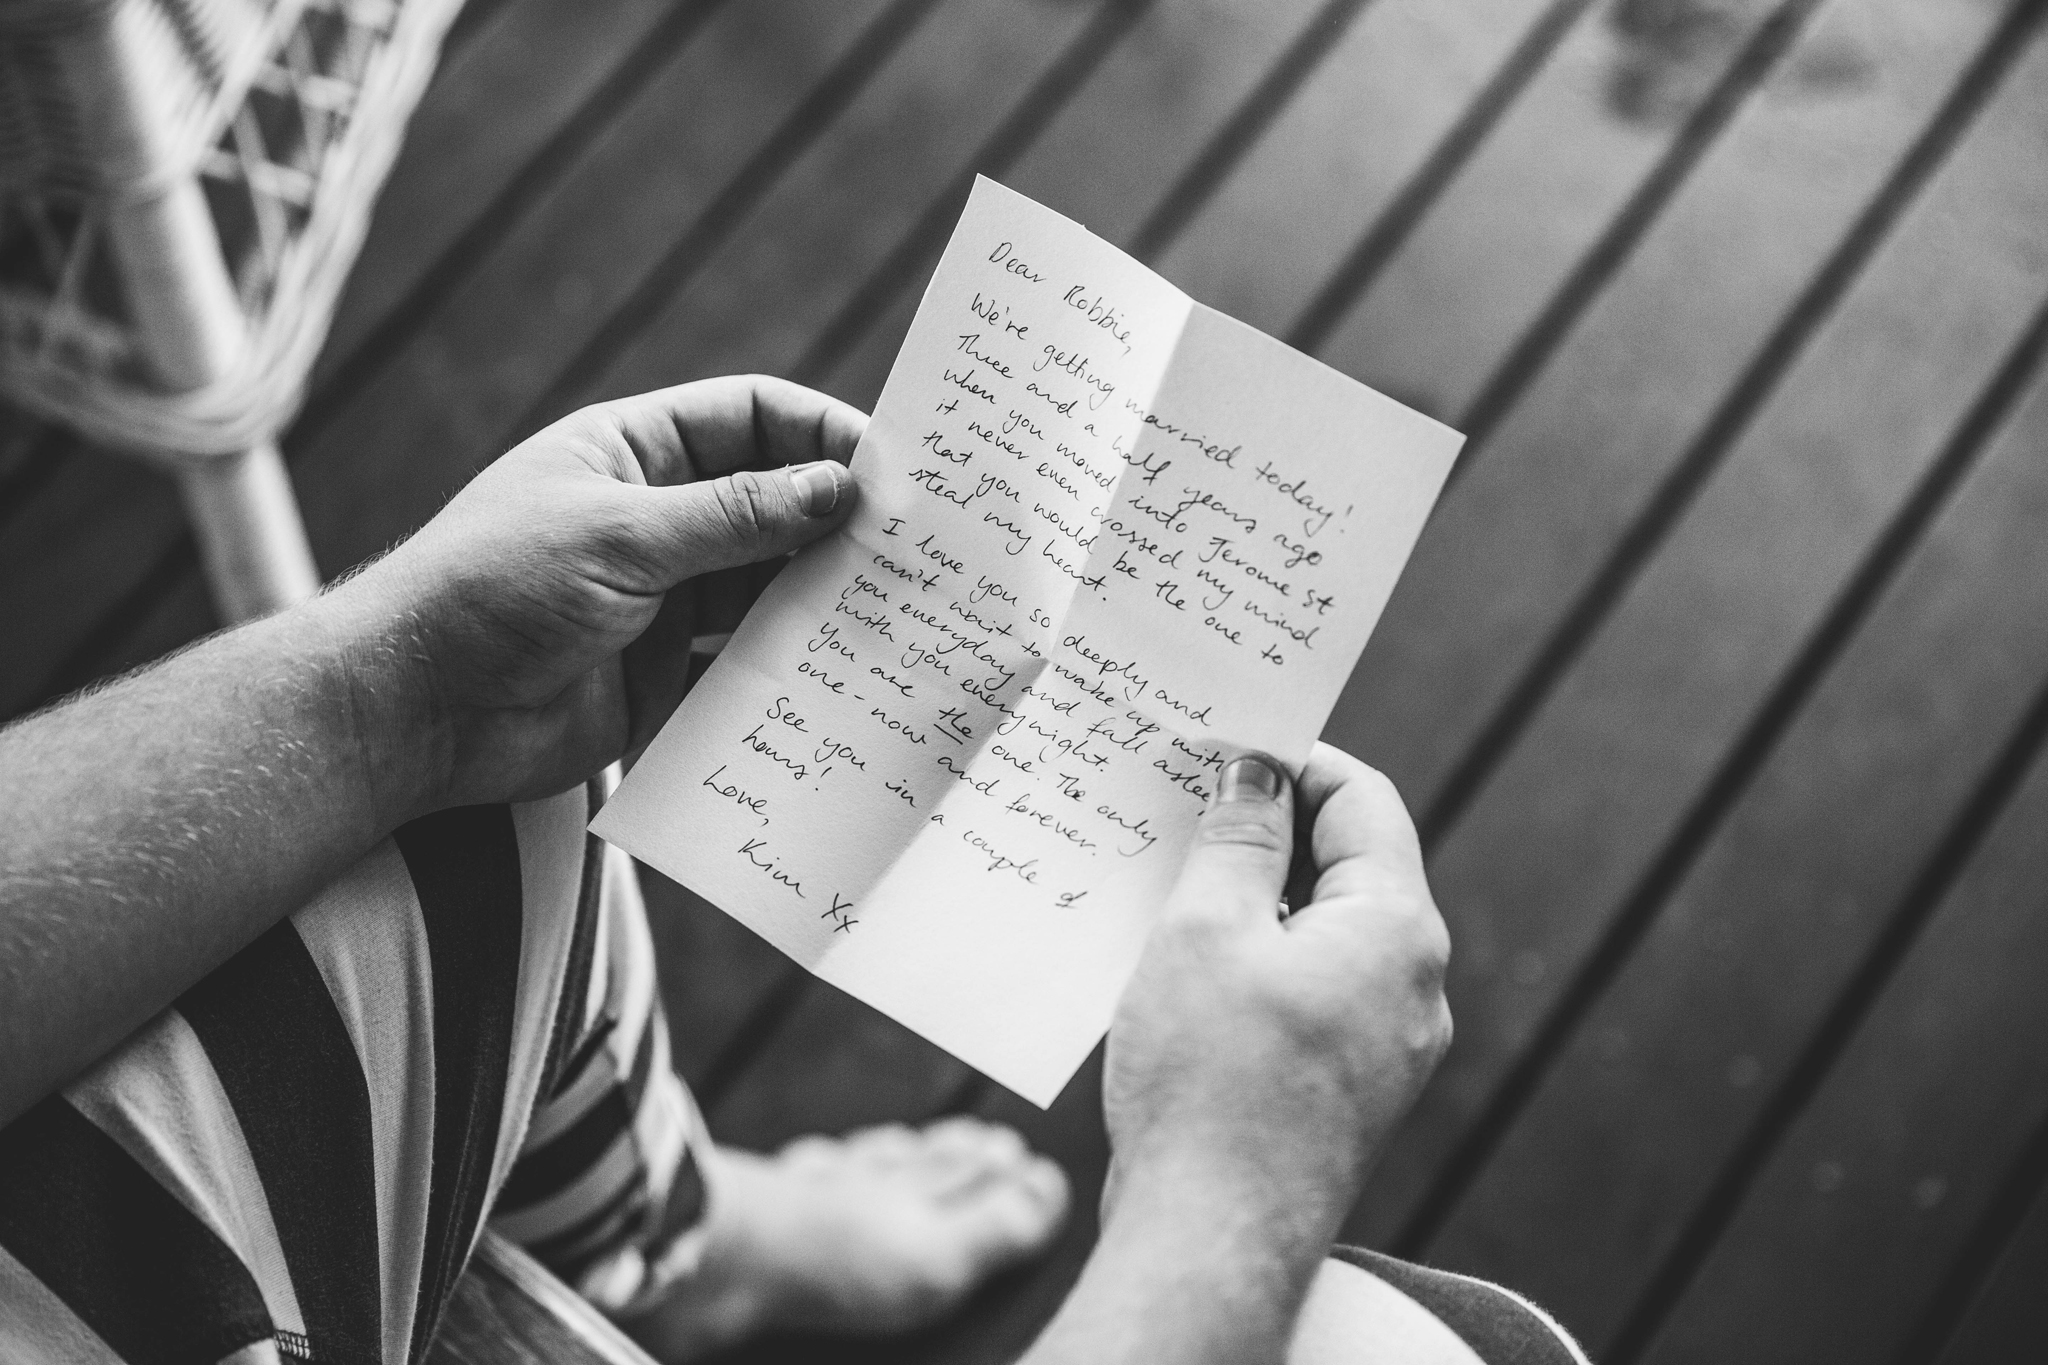 Dear Robbie,
We're getting married today!
Three and a half years ago
when you moved into Jerome st
it never even crossed my mind
that you would be the one to
steal my heart.
I love you so deeply and
can't wait to wake up with
you everyday and fall asleep
with you every night.
You are the one. The only
one - now and forever.
See you in a couple of
hours!
Love,
Kim Xx